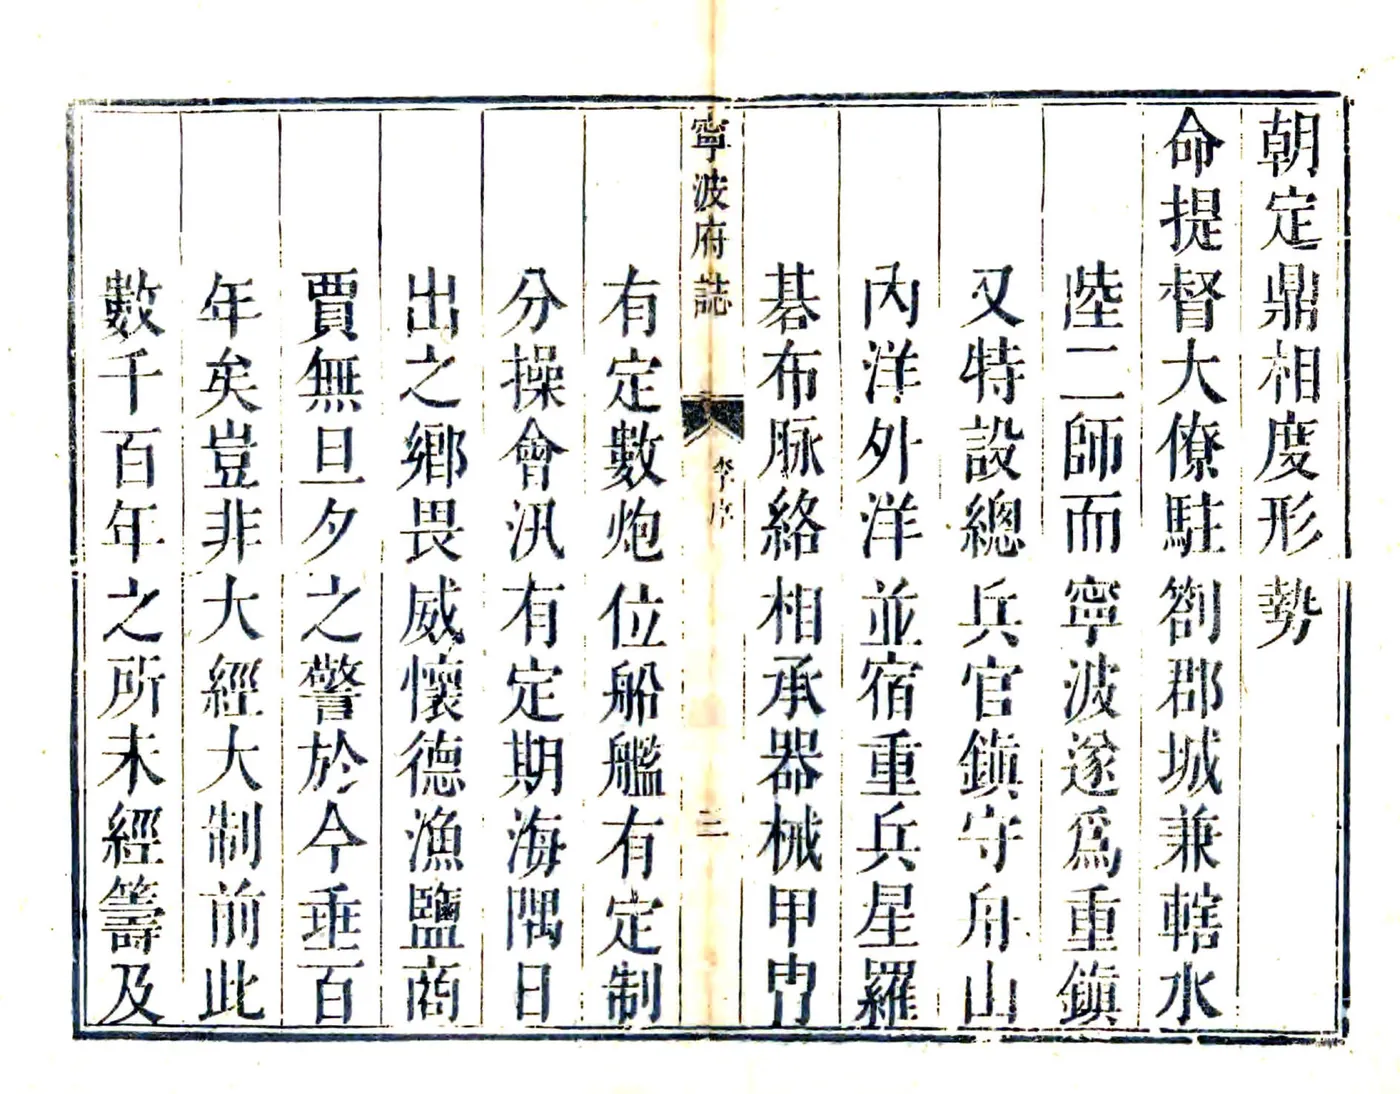 朝定鼎相度形勢
命提督大僚駐劄郡城兼轄水
陸二師而寧波遂爲重鎮
又特設總兵官鎮守舟山
內洋外洋並宿重兵星羅
碁布脉絡相承器械甲冑
寧波府誌 李序 三
有定數炮位船艦有定制
分操會汛有定期海隅日
出之鄉畏威懷德漁鹽商
賈無旦夕之警於今垂百
年矣豈非大經大制前此
數千百年之所未經籌及